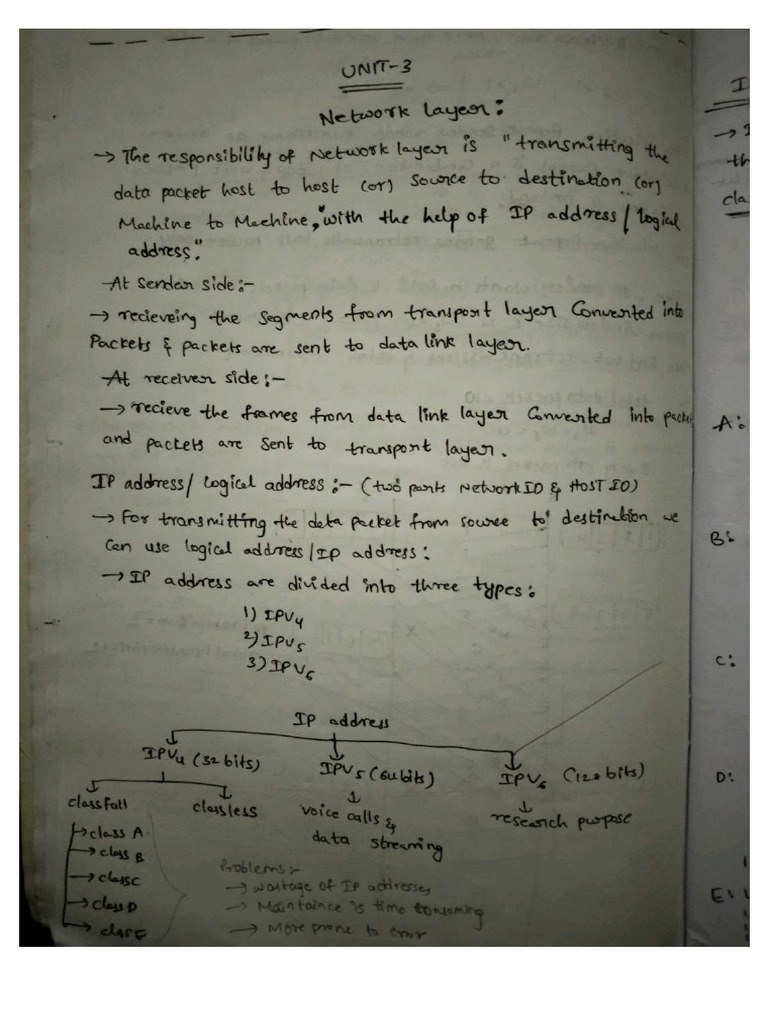 UNIT-3
Network layer:
→ The responsibility of Network layer is "transmitting the
data packet host to host (or) Source to destination (or)
Machine to Machine," with the help of IP address/logical
address".
At Sender side:-
→ recieveing the segments from transport layer Converted into
Packets & packets are sent to data link layer.
At receiver side:-
→ recieve the frames from data link layer Converted into packet
and packets are sent to transport layer.
IP address/Logical address:- (two parts Network ID & HOST ID)
→ For transmitting the data packet from source to destination we
can use logical address/IP address:
→ IP address are divided into three types:
1) IPV4
2) IPV5
3) IPV6
IP address
IPV4 (32 bits) IPV5 (64 bits) IPV6 (128 bits)
classfull classless voice calls & data streaming research purpose
→ class A
→ class B
→ class C
→ class D
→ class E
Problems:-
→ wastage of IP addresses
→ Maintaince is time consuming
→ More prone to error
I
→ I
th
cla
A:
B:
C:
D:
E: